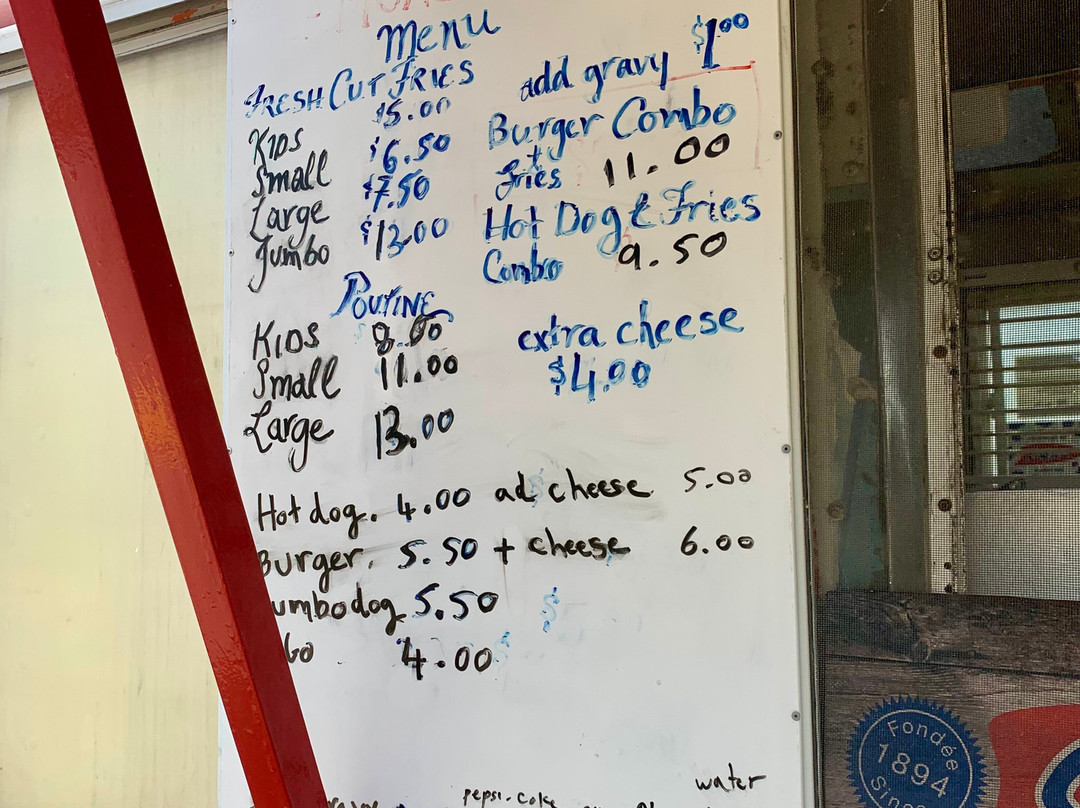 Menu
FRESH CUT FRIES
Kids $5.00
Small $6.50
Large $7.50
Jumbo $13.00
Poutine
Kids 8.00
Small 11.00
Large 13.00
add gravy $1.00
Burger Combo
+
fries 11.00
Hot Dog & Fries
Combo 9.50
extra cheese
$4.00
Hot dog. 4.00 ad cheese 5.00
Burger. 5.50 + cheese 6.00
umbo dog 5.50 $
4.00
pepsi. coke
water
Fondée
1894
Since